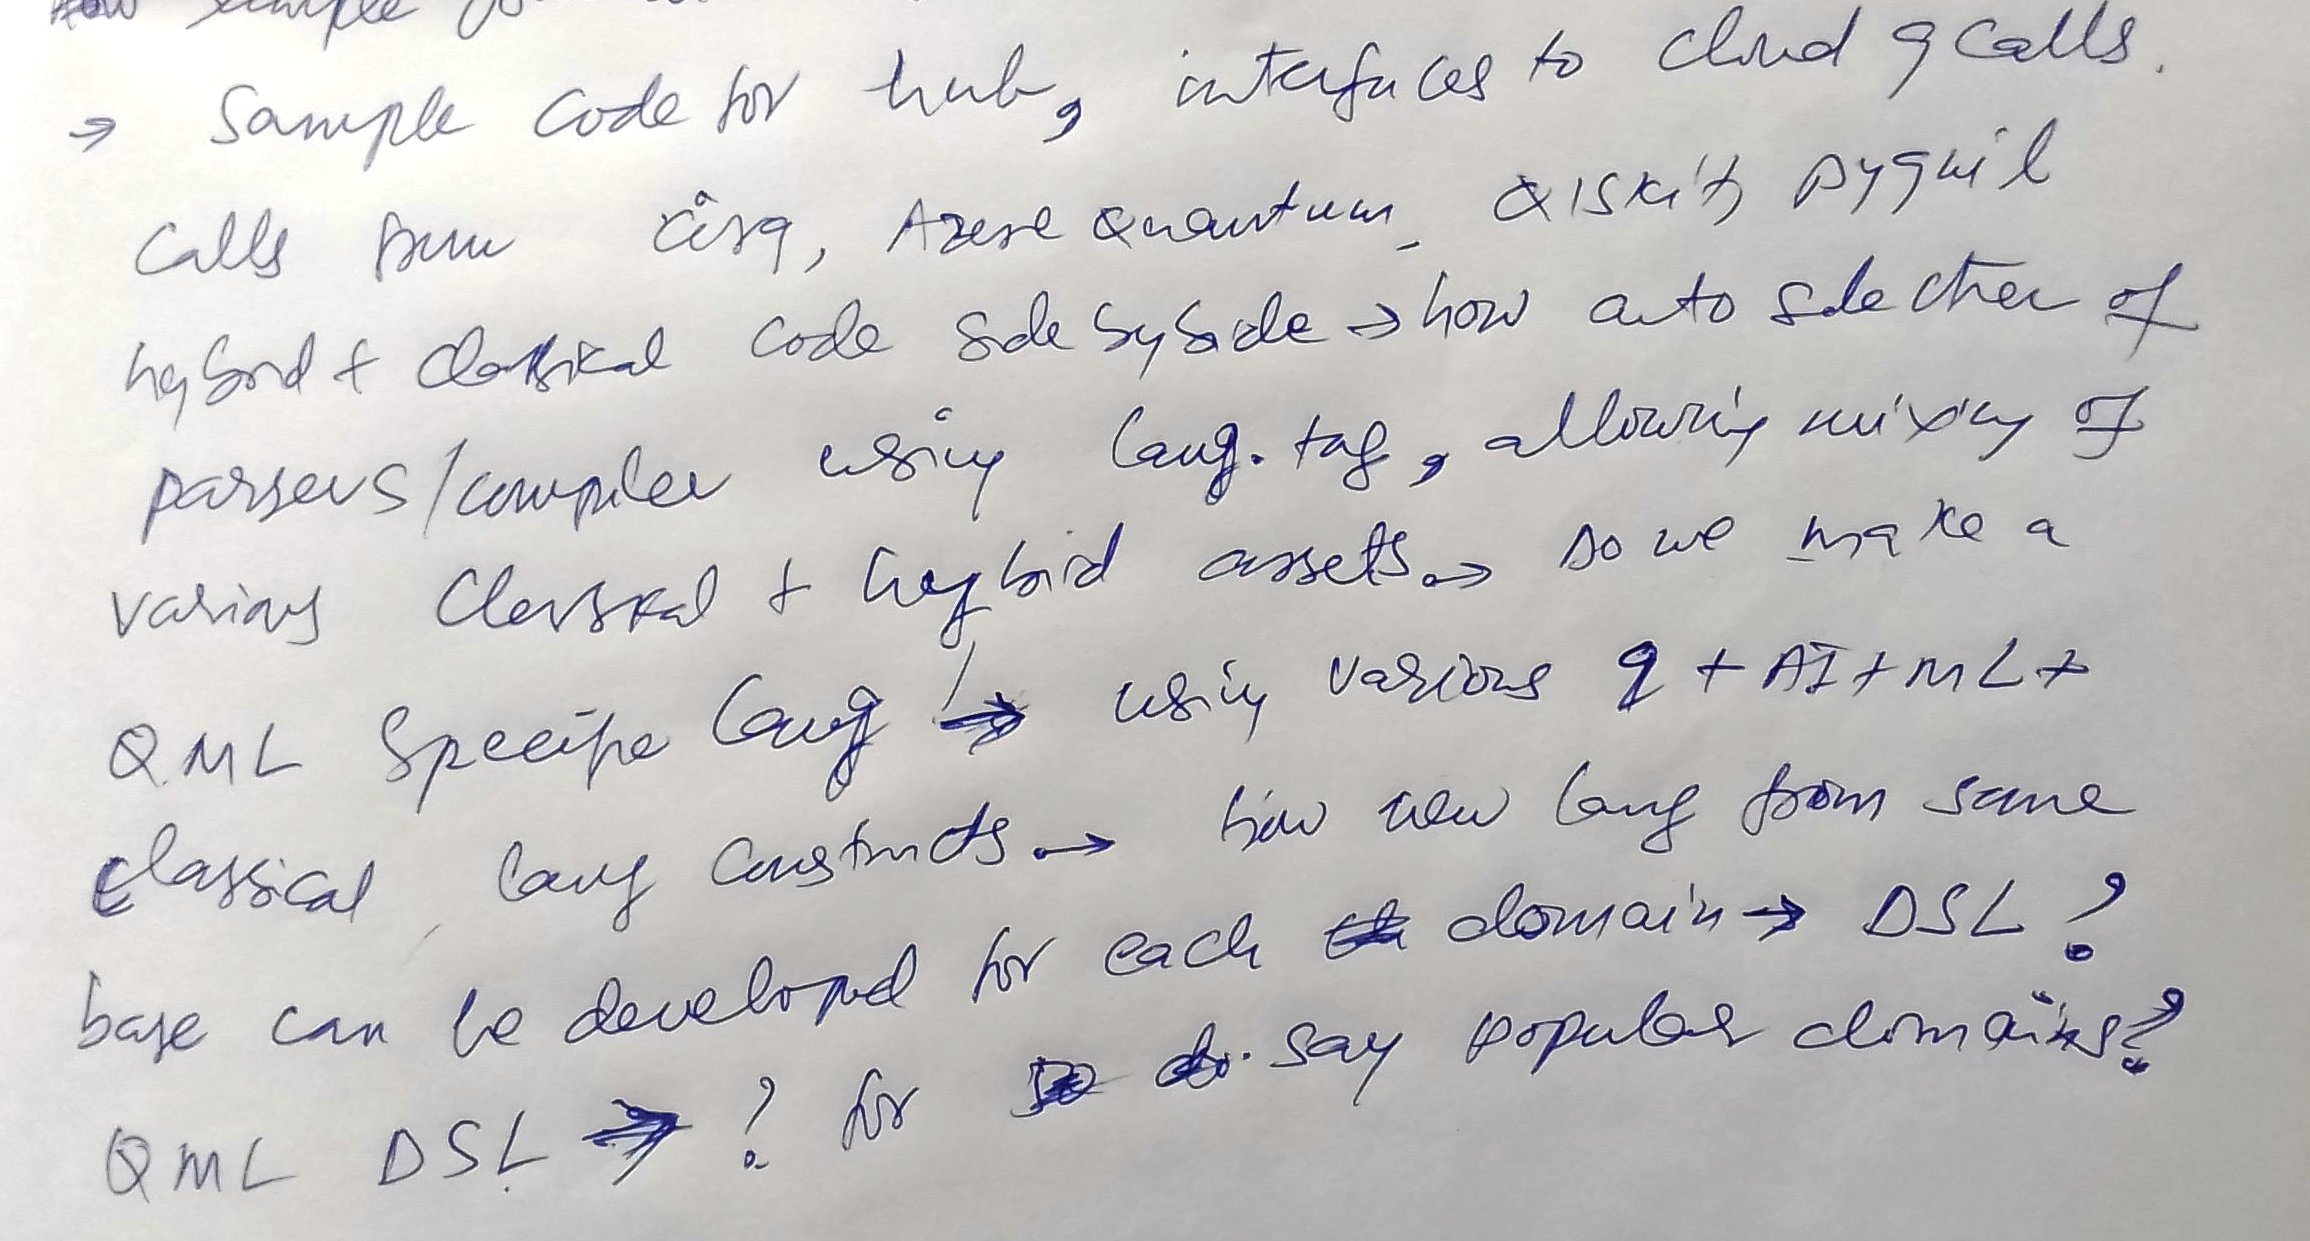 sample for
→ Sample code for hub, interfaces to cloud q calls.
calls from Cirq, Azure Quantum, QISKit, pyquil
hybrid + classical code side by side → how auto selection of
parsers/compiler using lang. tag, allowing mixing of
various classical + hybrid assets. → Do we make a
QML specific lang → using various q + AI + ML +
classical lang constructs. → how new lang from same
base can be developed for each domain → DSL?
QML DSL → ? for say popular domains?